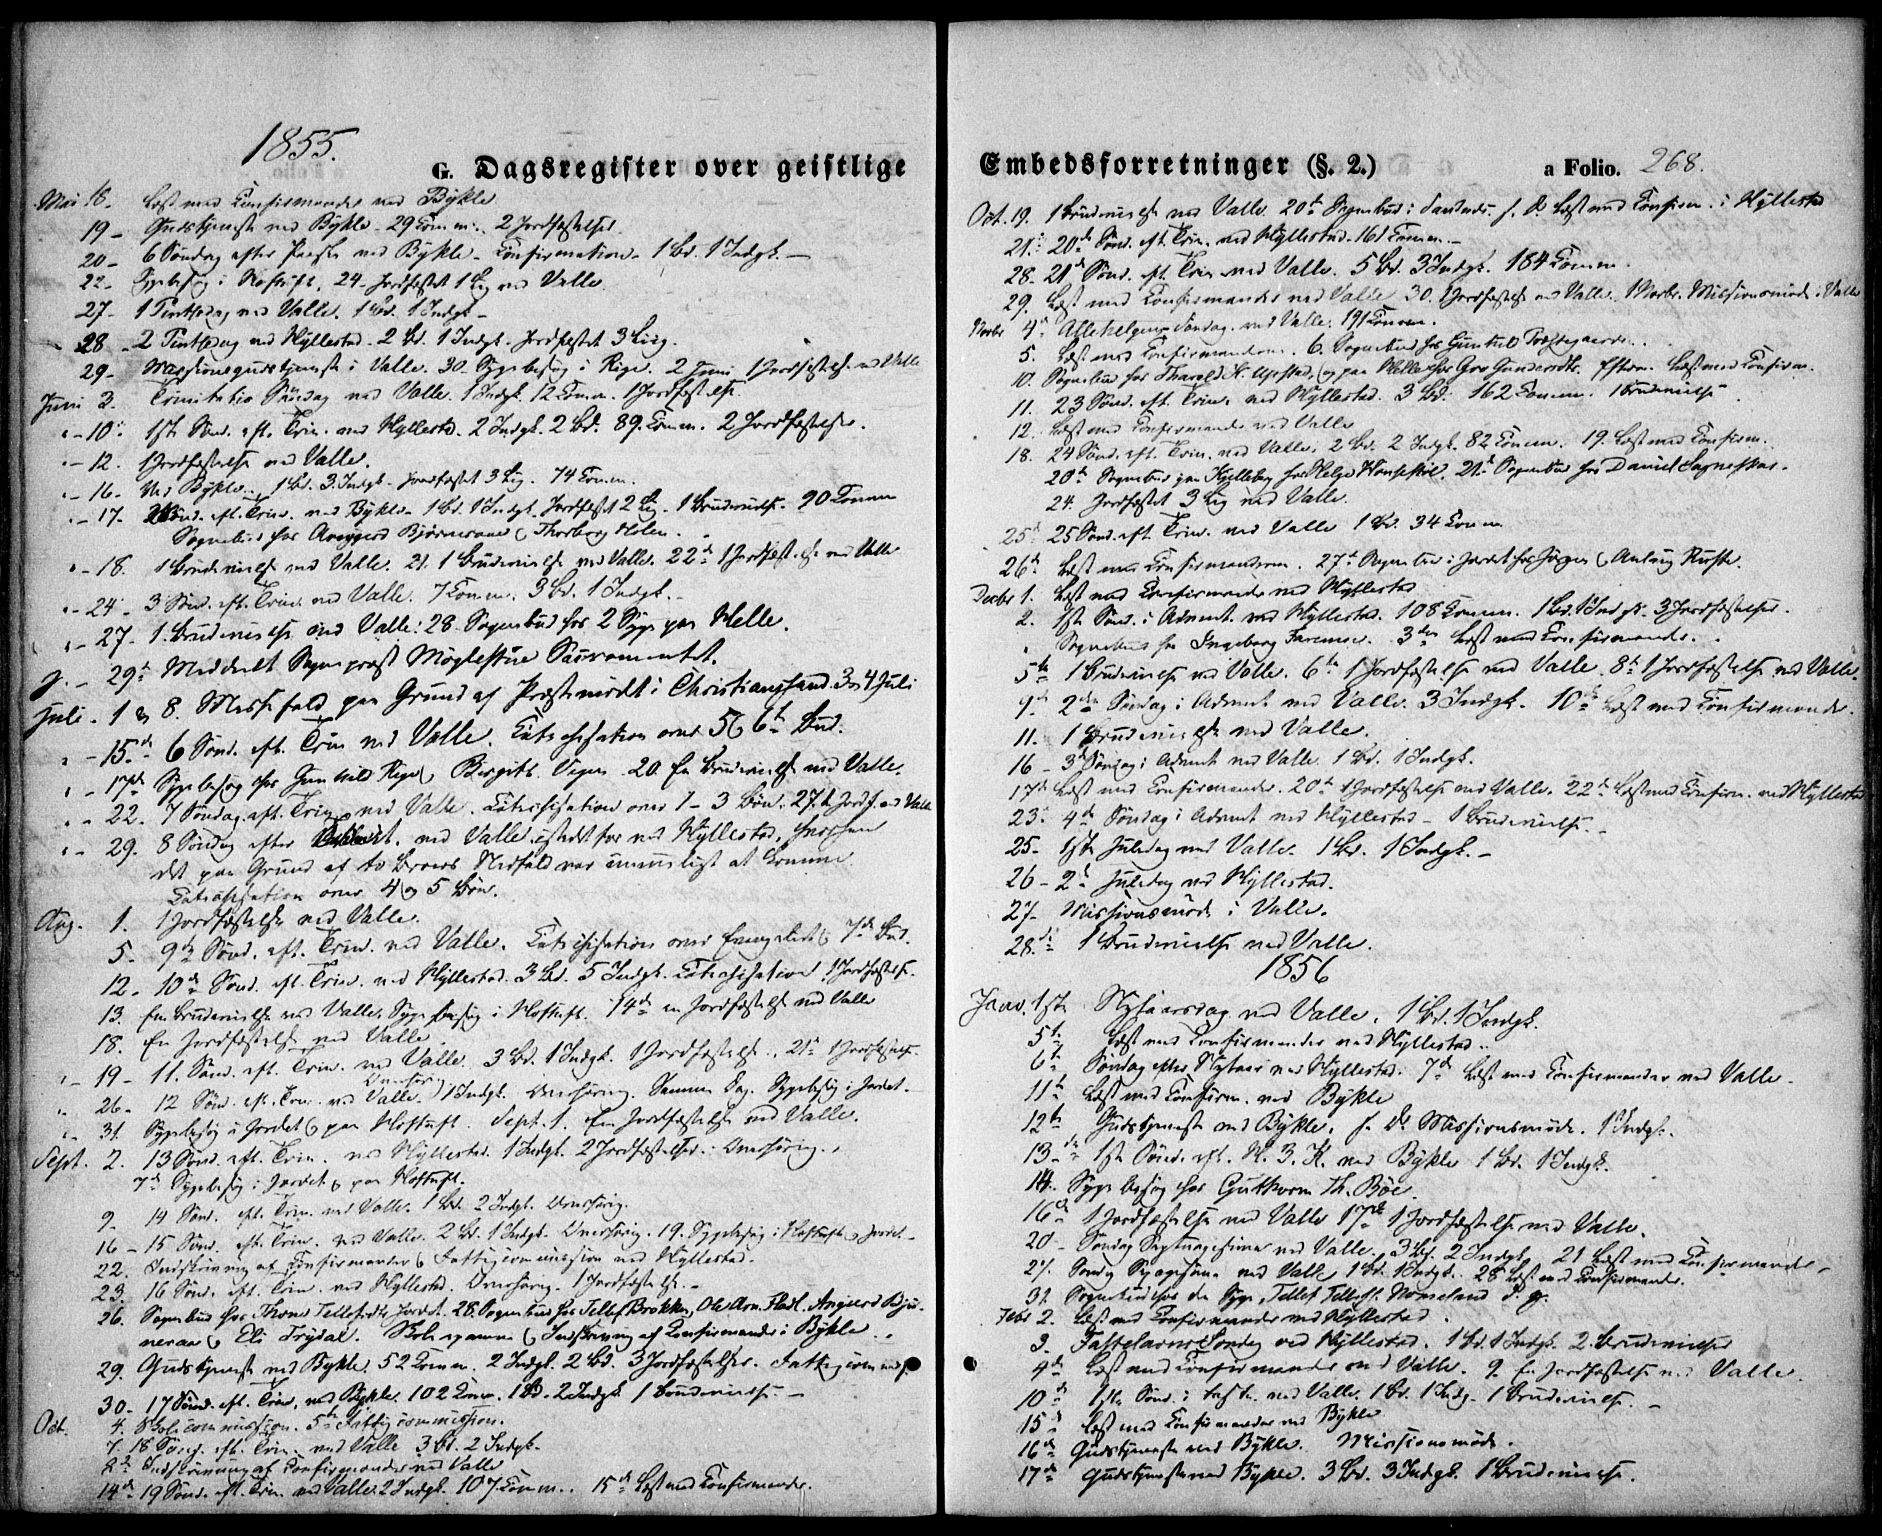 1855.
G. Dagsregister over geistlige
Mai 18. Læst med Confirmander ved Bykle
19 - Gudstjeneste ved Bykle. 29 Comm. 2 Jordfæstelser.
20 - 6 Søndag efter Paaske ved Bykle. Confirmation. 1 Bd. 1 Indgk. -
22 - Sygebesøg i Hoftuft, 24. Jordfæstet 1 Lig ved Valle.
27 - 1 Pintsedag ved Valle. 1 Bd. 1 Indgk -
28 - 2 Pintsedag ved Hyllestad. 2 Bd. 1 Indgk. Jordfæstet 3 Liig.
29 - Missionsgudstjeneste i Valle. 30. Sygebesøg i Rige. 2 Juni 1 Jordfæstelse ved Valle
Juni 3. Trinitatis Søndag ved Valle. 1 Indgk. 12 Comm. 1 Jordfæstelse.
" - 10 1ste Sønd. eft. Trin. ved Hyllestad. 2 Indgk. 2 Bd. 89. Comm. 2 Jordfæstelser.
" - 12. 1 Jordfæstelse ved Valle.
" - 16 - Ved Bykle. 1 Bd. 3 Indgk. Jordfæstet 3 Lig. 74 Comm.
" - 17 - Sønd. eft. Trin. ved Bykle. 1 Bd. 1 Indgk. Jordfæstet 2 Lig. 1 Brudevielse. 90 Comm
Sognebud hos Anggerd Bjørnerane & Thorborg Holen.
" - 18. 1 Brudevielse ved Valle. 21. 1 Brudevielse ved Valle. 22de 1 Jordfæstelse ved Valle
" - 24 - 3 Sønd. eft. Trin. ved Valle. 7 Comm. 3 Bd. 1 Indgk.
" - 27 - 1. Brudevielse ved Valle. 28. Sognebud hos 2 Syge paa Helle.
J. - 29de Meddeelt Sognepræst Møglestue Sacramentet.
Juli - 1 & 8. Messefald paa Grund af Præstemødet i Christiansand 3 & 4 Juli
" - 15de 6 Sønd. eft. Trin. ved Valle. Catechisation over 5 & 6te Bud.
" - 17de Sygebesøg hos Gunhild Rige & Birgitte Vegen. 20. En Brudevielse ved Valle.
" - 22. 7 Søndag eft. Trin. ved Valle. Catechisation over 1 - 3 Bøn. 27de Jordf. ved Valle
" - 29. 8 Søndag efter Trinit. ved Valle istedetfor ved Hyllestad, hvorhen
det paa Grund af to Broers Nedfald var umuligt at komme.
Catechisation over 4 og 5 Bøn.
Aug. 1. 1 Jordfæstelse ved Valle.
5. 9de Sønd. eft. Trin. ved Valle. Catechisation over Evangeliet & 7de Bud.
12. 10de Sønd. eft. Trin. ved Hyllestad. 3 Bd. 5 Indgk. Catechisation 1 Jordfæstelse.
13. En Brudevielse ved Valle. Sygebesøg i Hoftuft. 14de en Jordfæstelse ved Valle
18. En Jordfæstelse ved Valle.
" - 19 - 11. Sønd. eft. Trin. ved Valle. 3 Bd. 1 Indgk. 1 Jordfæstelse. 21de 1 Jordfæstelse.
" 26 - 12 Sønd. eft. Trin. ved Valle. 1 Indgk. Overhøring. Samme Dag. Sygebesøg i Jordet.
" 31. Sygebesøg i Jordet & paa Hoftuft. Sept. 1. En Jordfæstelse ved Valle.
Sept. 2. 13 Sønd. eft. Trin. ved Hyllestad. 1 Indgk. 2 Jordfæstelser. Overhøring.
7de Sygebesøg i Jordet & paa Hoftuft.
9 - 14 Sønd. eft. Trin. ved Valle. 1 Bd. 2 Indgk. Overhøring.
16 - 15 Sønd. eft. Trin. ved Valle. 2 Bd. 1 Indgk. Overhøring. 19. Sygebesøg i Hoftuft & Jordet -
22. Indskrivning af Confirmander & Fattigcommission ved Hyllestad.
23. 16 Sønd. eft. Trin. ved Hyllestad. Overhøring. 1 Jordfæstelse. -
26. Sognebud hos Thone Tellefsdtr. Jordet. 28. Sognebud hos Tellef Brokke, Ole Arn. Flatl. Anggerd Bjør-
nerane & Eli Trydal. Skolexamen & Indskrivning af Confirmander i Bykle.
29. Gudstjeneste ved Bykle. 52 Comm. 2 Indgk. 2 Bd. 3 Jordfæstelser. Fattigcommiss.
30 - 17 Sønd. eft. Trin. ved Bykle. 102 Comm. 1 Bd. 2 Indgk 1 Brudevielse -
Oct. 4. Skolecommission. 5te Fattigcommission.
7. 18 Sønd. eft. Trin. ved Valle 3 Bd. 2 Indgk.
8de Indskrivning af Confirmander ved Valle
14de 19 Sønd. eft. Trin. ved Valle 2 Indgk. 107 Comm. 15de Læst med Confirmander.
Embedsforretninger (§. 2.)
a Folio. 268.
Oct. 19. 1 Brudevielse ved Valle. 20de Sognebud i s. D. Læst med Confirm. i Hyllestad
21. 20de Sønd. eft. Trin. ved Hyllestad. 161 Comm. -
28 - 21de Sønd. eft. Trin. ved Valle. 5 Bd. 3 Indgk. 184 Comm.
29. Læst med Confirmander ved Valle 30. 1 Jordfæstelse ved Valle. 1 Novbr. Missionsmøde i Valle
Novbr. 4de Allehelgens Søndag. ved Valle. 191 Comm.
5. Læst med Confirmanderne. 6. Sognebud hos Gunhild
10. Sognebud hos Tharald K. Upstad, og paa Helle hos Gro Gundersdtr. Efterm. Læst med Confirm.
11. 23 Sønd. eft. Trin. ved Hyllestad. 3 Bd. 162 Comm. 1 Brudevielse.
12. Læst med Confirmander ved Valle
18. 24 Sønd. eft. Trin. ved Valle. 2 Bd. 2 Indgk. 82 Comm. 19. Læst med Confirm.
20de Sognebud paa Kjelleberg hos Helge 21de Sognebud hos Daniel
24. Jordfæstet 3 Lig ved Valle.
25de 25 Sønd. eft. Trin. ved Valle 1 Bd. 34 Comm
26de Læst med Confirmanderne. 27de Sognebud i Jordet hos Jørgen & Anlaug
Decbr 1. Læst med Confirmander ved Hyllestad
2. 1ste Sønd. i Advent ved Hyllestad. 108 Comm. 1 Bd. 1 Indgk. 3 Jordfæstelser.
Sognebud hos Ingeborg 3die Læst med Confirmander.
5te 1 Brudevielse ved Valle. 6te 1 Jordfæstelse ved Valle. 8de 1 Jordfæstelse ved Valle.
9de 2den Søndag i Advent ved Valle. 3 Indgk. 10de Læst med Confirmander.
11. 1 Brudevielse ved Valle.
16 - 3de Søndag i Advent ved Valle 1 Bd. 1 Indgk.
17de Læst med Confirmander. 20de 1 Jordfæstelse ved Valle. 22de Læst med Confirm. ved Hyllestad
23. 4de Søndag i Advent ved Hyllestad - 1 Brudevielse. -
25 - 1ste Juledag ved Valle. 1 Bd. 1 Indgk. -
26 - 2de Juledag ved Hyllestad.
27 - Missionsmøde i Valle.
28de 1 Brudevielse ved Valle.
1856
Janv. 1ste Nytaarsdag ved Valle. 1 Bd. 1 Indgk.
5te Læst med Confirmander ved Hyllestad.
6te Søndag efter Nytaar ved Hyllestad. 7de Læst med Confirmander ved Valle.
11te Læst med Confirm. ved Bykle
12te Gudstjeneste ved Bykle. s. D. Missionsmøde. 1 Indgk.
13de 1ste Sønd. eft. H. 3. K. ved Bykle 1 Bd. 1 Indgk.
14. Sygebesøg hos Gutthorm Th. Bøe.
16de 1 Jordfæstelse ved Valle 17de 1 Jordfæstelse ved Valle.
20 - Søndag Septuagesima ved Valle. 3 Bd. 2 Indgk. 21 Læst med Confirmander.
27. Søndag Sexagesima ved Valle 1 Bd. 1 Indgk. 28 Læst med Confirmander.
31. Sognebud hos den Syge Tellef Tellefs. Homeland
Febr 2. Læst med Confirmander ved Hyllestad.
3. Fastelavns Søndag ved Hyllestad. 1 Bd. 1 Indgk. 2 Brudevielser
4de Læst med Confirmander ved Valle. 9. En Jordfæstelse ved Valle.
10de 1ste Sønd. i Faste. ved Valle. 1 Bd. 1 Indg. 1 Brudevielse. -
15de Læst med Confirmander ved Bykle
16de Gudstjeneste ved Bykle. Missionsmøde.
17de Gudstjeneste ved Bykle. 3 Bd. 3 Indgk. 1 Brudevielse.